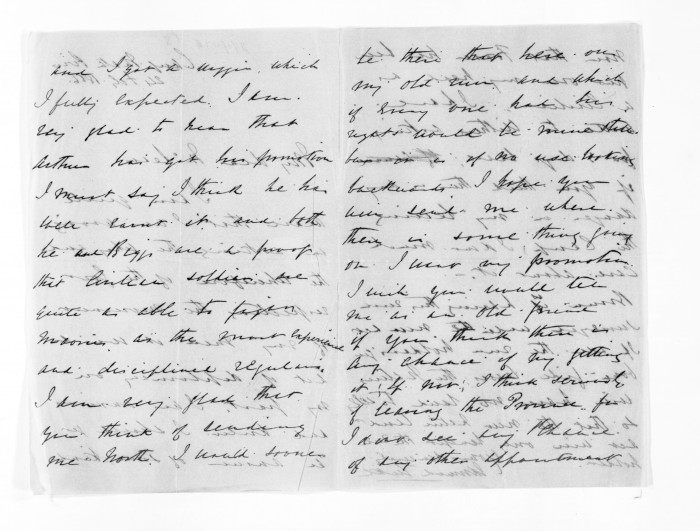 and I got a wigging, which
I fully expected. I am
very glad to hear that
Arthur has got his promotion
I must say I think he has
well earnt it and both
he and Biggs are a proof
that Civilian soldiers are
quite as able to fight
Maories as the most experienced
and disciplined regulars.
I am very glad that
you think of sending
me North. I would sooner
be there than here on
my old run and which
if every one had his
rights would be mine
but it is of no use looking
backwards I hope you
will send me where
there is some thing going
on I want my promotion
I wish you would tell
me as an old friend
if you think there is
any chance of my getting
it; If not, I think seriously
of leaving the Province for
I never see any chance
of any other appointment